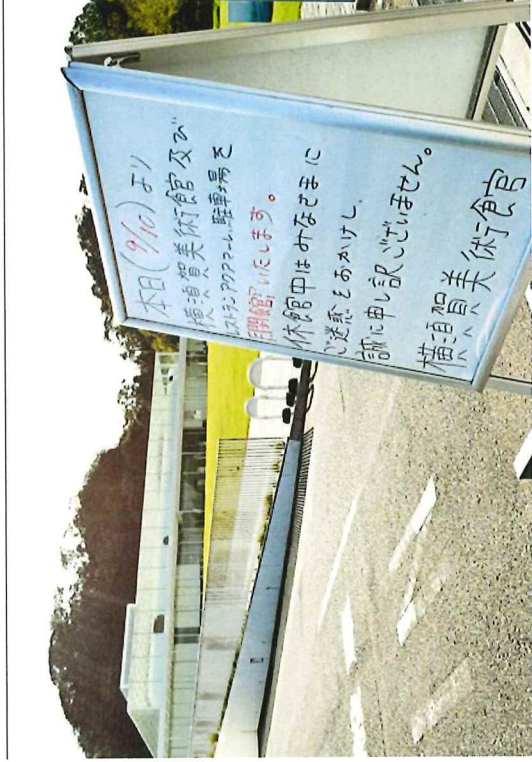 本日(9/10)より
横須賀美術館及び
レストランアクアマーレ、駐車場を
開館いたします。
休館中はみなさまに
ご迷惑をおかけし、
誠に申し訳ございません。
横須賀美術館